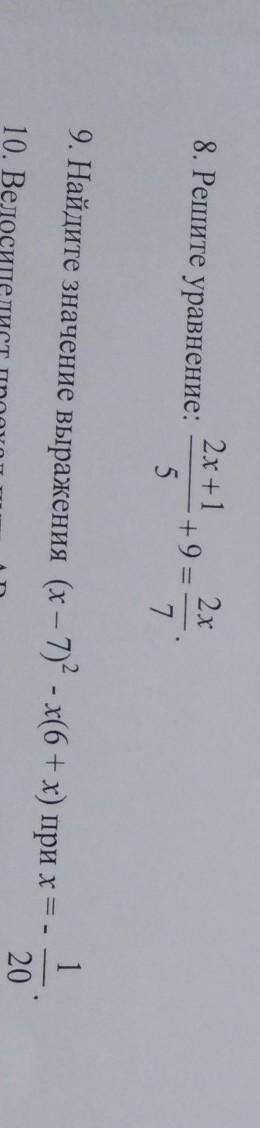 8. Решите уравнение: (2x + 1)/5 + 9 = 2x/7.
9. Найдите значение выражения (x – 7)² - x(6 + x) при x = - 1/20.
10. Велосипедист проехал